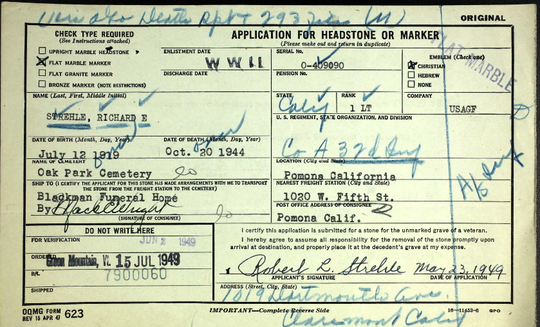 ORIGINAL
CHECK TYPE REQUIRED
(See Instructions attached)
UPRIGHT MARBLE HEADSTONE
X FLAT MARBLE MARKER
FLAT GRANITE MARKER
BRONZE MARKER (NOTE RESTRICTIONS)
APPLICATION FOR HEADSTONE OR MARKER
(Please make out and return in duplicate)
ENLISTMENT DATE
DISCHARGE DATE
W W II
SERIAL No.
O-409090
PENSION No.
EMBLEM (Check one)
X CHRISTIAN
HEBREW
NONE
FLAT MARBLE
NAME (Last, First, Middle Initial)
STREHLE, RICHARD E
STATE
Calif
RANK
1 LT
COMPANY
USAGF
U. S. REGIMENT, STATE ORGANIZATION, AND DIVISION
Co A 32d Inf
DATE OF BIRTH (Month, Day, Year)
July 12 1919
DATE OF DEATH (Month, Day, Year)
Oct. 20 1944
NAME OF CEMETERY
Oak Park Cemetery
LOCATION (City and State)
Pomona California
SHIP TO (I CERTIFY THE APPLICANT FOR THIS STONE HAS MADE ARRANGEMENTS WITH ME TO TRANSPORT THE STONE FROM THE FREIGHT STATION TO THE CEMETERY)
Blackman Funeral Home
By
(SIGNATURE OF CONSIGNEE)
NEAREST FREIGHT STATION (City and State)
1020 W. Fifth St.
POST OFFICE ADDRESS OF CONSIGNEE
Pomona Calif.
DO NOT WRITE HERE
FOR VERIFICATION
1949
ORDERED
15 JUL 1949
B/L
7900060
I certify this application is submitted for a stone for the unmarked grave of a veteran.
I hereby agree to assume all responsibility for the removal of the stone promptly upon arrival at destination, and properly place it at the decedent's grave at my expense.
Robert L. Strehle May 23, 1949
APPLICANT'S SIGNATURE
DATE
ADDRESS (Street, City, and State)
1019 Dartmouth Ave.
Claremont Calif
OQMG FORM
REV 15 APR 47
623
IMPORTANT—Complete Reverse Side
GPO